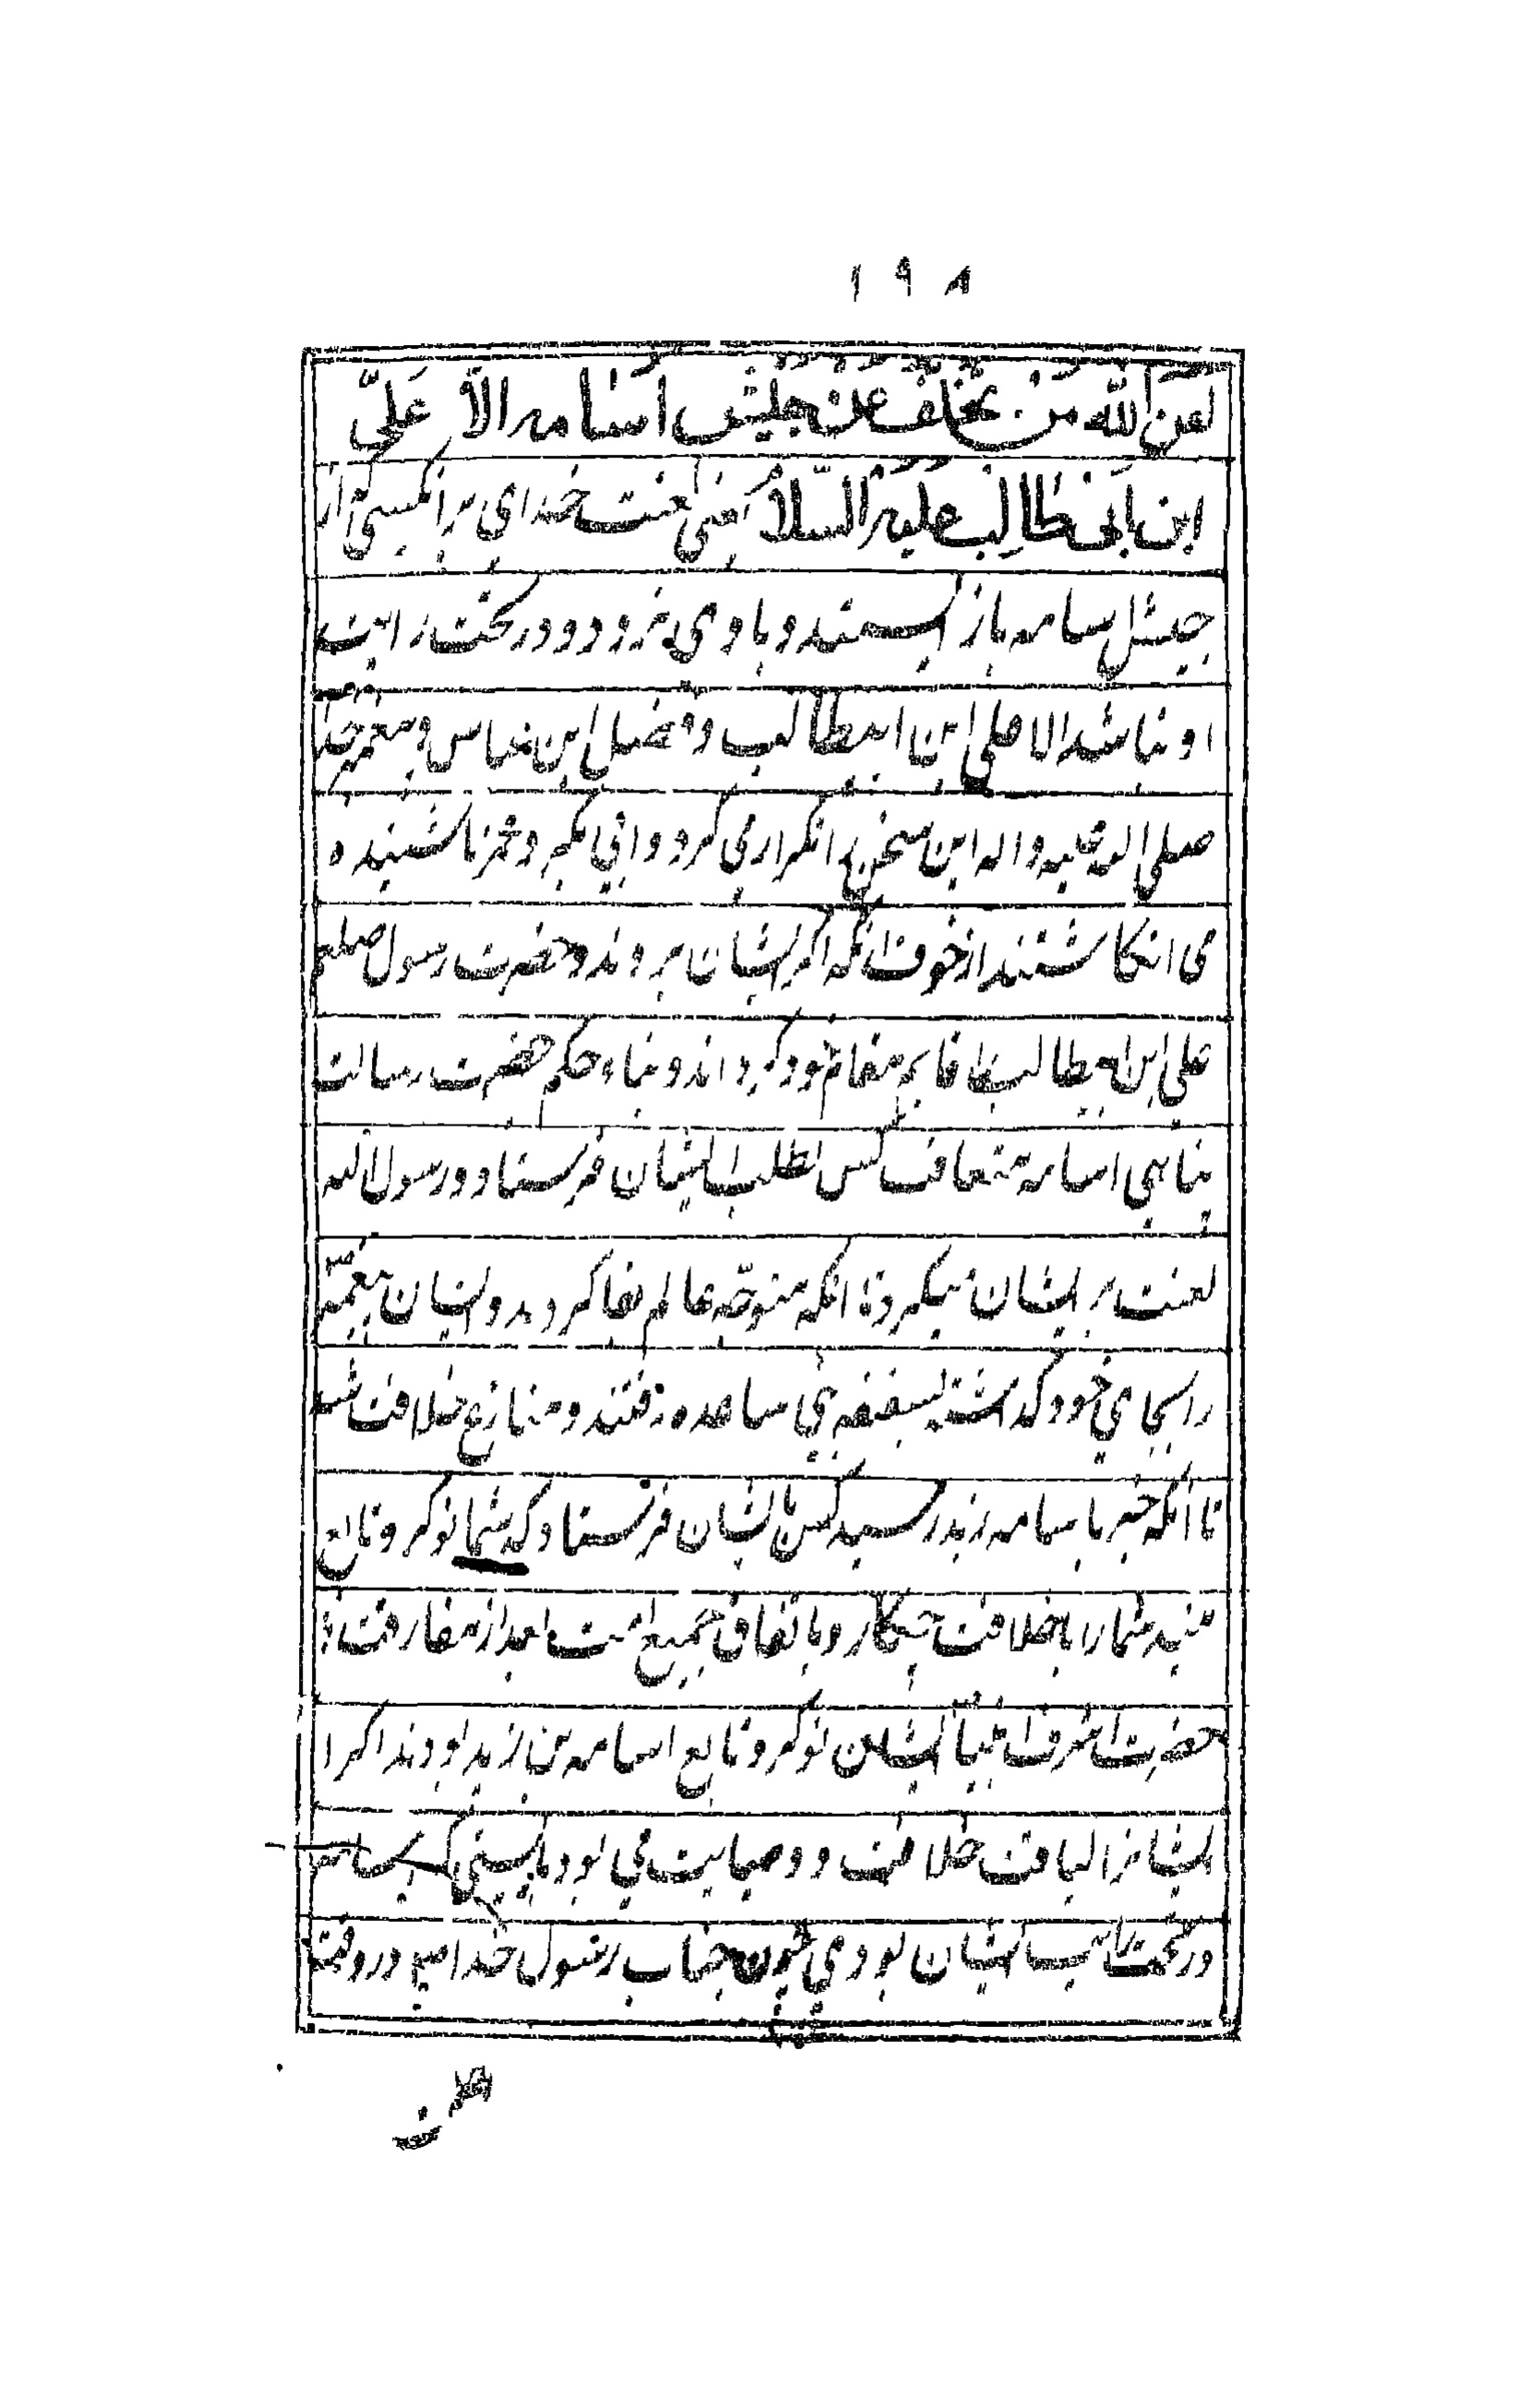 ۱۹۸
لعن الله من تخلف عن جیش اسامه الا علی
ابن ابی طالب علیه السلام یعنی لعنت خدای بر انکسی که از
جیش اسامه باز ایستد و با وی نرود و در تحت رایت
او نباشد الا علی ابن ابیطالب و فضل ابن عباس و پیغمبر خدا
صلی الله علیه و اله این سخن را تکرار می کرد و ابی بکر و عمر ناشنیده
می انکاشتند از خوف انکه اکر ایشان بروند و حضرت رسول صلعم
علی ابن ابیطالب را قایم مقام خود کرداند و بناء حکم حضرت رسالت
پناهی اسامه متعاقب کس بطلب ایشان فرستاد و رسول الله
لعنت بر ایشان میکرد تا انکه متوجه عالم بقا کردید و ایشان پیغمبر
را بجای خود کذاشته بسقیفه بنی ساعده رفتند و منازع خلافت شدند
تا انکه خبر باسامه زید رسید کس بایشان فرستاد که شما نوکر و تابع
منید شما را با خلافت چه کار و باتفاق جمیع امت بعد از مفارقت
حضرت اشرف انبیا ایشان نوکر و تابع اسامه بن زید بودند اکر
ایشانرا لیاقت خلافت و وصایت می بود بایستی که اسامه
در تحت رایت ایشان بودی چون جناب رسول خدا صلعم در وقت